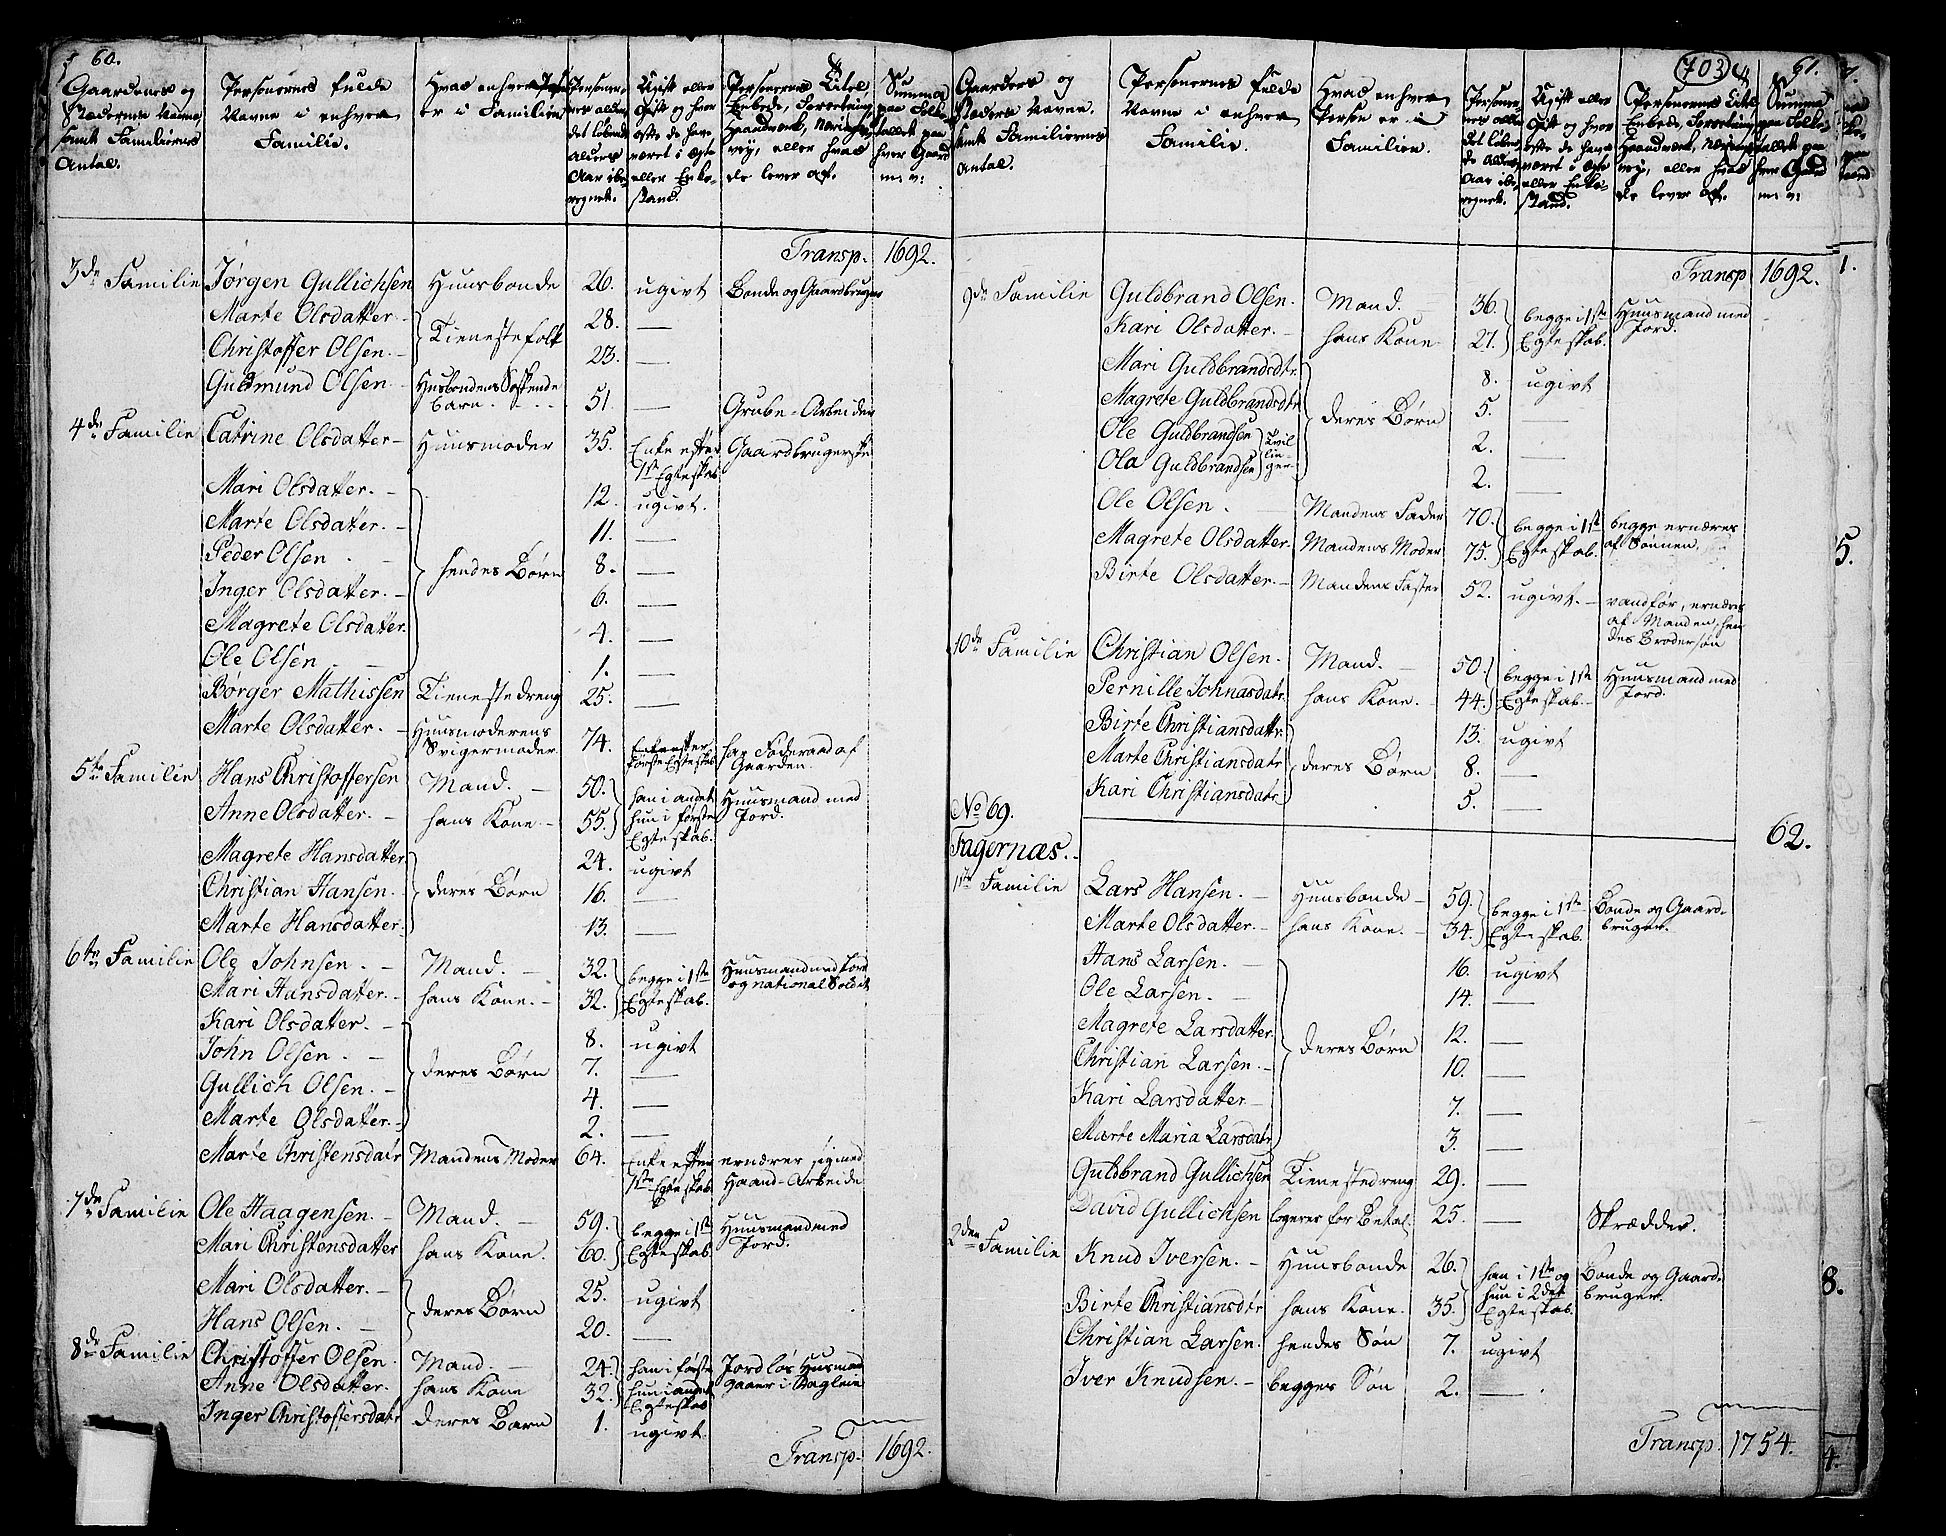 60.
Gaardenes og
Stædernes Navne
samt Familiernes
Antal.
Personernes fulde
Navne i enhver
Familie.
Hvad enhver Person
er i Familien
Personer-
nes alder
det løbende
Alders
Aar ibe-
regnet.
Ugift eller
Gift og hvor
ofte de have
været i Egte
eller Enke-
stand.
Personernes Titel,
Embede, Forretning,
Haandverk, Nærings-
vey, eller hvad
de lever af.
Summa
paa Folke-
tallet paa
hver Gaard
m: v:
Transp. 1692.
3de Familie Jørgen Gullichsen Huusbonde 26. ugivt Bonde og Gaardbruger
Marte Olsdatter. Tienestefolk 28. —
Christoffer Olsen. 23. —
Guldmund Olsen Husbondens Søskende
barn. 51. — Grube-Arbeider
4de Familie Catrine Olsdatter Huusmoder 35. Enke efter
1ste Egteskab Gaardbrugerske
Mari Olsdatter. 12. ugivt.
Marte Olsdatter. 11. —
Peder Olsen hendes Børn 8. —
Inger Olsdatter. 6. —
Magrete Olsdatter. 4. —
Ole Olsen 1. —
Børger Mathissen Tienestedreng 25. —
Marte Olsdatter. Huusmoderens
Svigermoder. 74. Enke efter
første Egteskab har Føderaad af
Gaarden.
5te Familie Hans Christoffersen Mand. 50. han i andet
Huusmand med
Anne Olsdatter. hans Kone 55. hun i første
Egteskab. Jord.
Magrete Hansdatter 24. ugivt
Christian Hansen. deres Børn 16. —
Marte Hansdatter. 13. —
6te Familie Ole Johnsen. Mand. 32. begge i 1ste Huusmand med Jord
Mari Hansdatter. hans Kone. 32. Egteskab. og national Soldat
Kari Olsdatter. 8. ugivt
John Olsen. deres Børn 7. —
Gullich Olsen. 4. —
Marte Olsdatter. 2. —
Marte Christensdatr Mandens Moder 64. Enke efter
1ste Egteskab ernærer sig med
Haand-Arbeide
7de Familie Ole Haagensen. Mand. 59. begge i 1ste Huusmand med
Mari Christensdatter hans Kone. 60. Egteskab. Jord.
Mari Olsdatter. deres Børn 25. ugivt
Hans Olsen. 20. —
8de Familie Christoffer Olsen. Mand. 24. han i første Jordløs Husmand
Anne Olsdatter. hans Kone 32. hun i andet
Egteskab gaaer i Dagleie
Inger Christoffersdatr deres Barn 1. ugivt.
Transp. 1692.
703
61.
Gaardenes og
Stædernes Navne.
samt Familiernes
Antal.
Personernes fulde
Navne i enhver
Familie.
Hvad enhver
Person er i
Familien.
Personer-
nes alder
det løben-
de Alders
Aar ibe-
regnet.
Ugift eller
Gift og hvor
ofte de have
været i Egte
eller Enke-
stand.
Personernes Titel
Embede, Forretning
Haandverk, Nærings-
vey, eller hvad
de lever af.
Summa
paa Folke-
tallet paa
hver Gaard
m: v:
Transp 1692.
9de Familie Guldbrand Olsen. Mand. 36. begge i 1ste Huusmand med
Kari Olsdatter. hans Kone 21. Egteskab. Jord.
Mari Guldbrandsdtr 8. ugivt
Magrete Guldbrandsdtr deres Børn 5. —
Ole Guldbrandsen Tvil-
lin-
ger 2. —
Ola Guldbrandsen 2. —
Ole Olsen. Mandens Fader 70. begge i 1ste begge ernæres
Magrete Olsdatter. Mandens Moder 75. Egteskab. af Sønnen.
Birte Olsdatter. Mandens Faster 52. ugivt. vanfør, ernæres
af Manden, hen-
des Brodersøn
10de Familie Christian Olsen. Mand. 50. begge i 1ste Huusmand med
Pernille Johnasdatr hans Kone. 44. Egteskab. Jord.
Birte Christiansdattr. 13. ugivt
Marte Christiansdatr deres Børn 8. —
Kari Christiansdatr 5. —
62.
No 69.
Fagernæs.
1ste Familie Lars Hansen. Huusbonde 59. begge i 1ste Bonde og Gaard-
Marte Olsdatter. hans Kone. 34. Egteskab. bruger.
Hans Larsen. 16. ugivt
Ole Larsen. 14. —
Magrete Larsdatter. deres Børn 12. —
Christian Larsen. 10. —
Kari Larsdatter 7. —
Marte Maria Larsdatr 3. —
Guldbrand Gullichsen Tienestedreng 29. —
David Gullichsen logerer for Betal. 25. — Skrædder.
2den Familie Knud Iversen. Huusbonde 26. han i 1ste og Bonde og Gaard-
Birte Christiansdtr hans Kone. 35. hun i 2det
Egteskab. bruger.
Christian Larsen. hendes Søn 7. ugivt
Iver Knudsen. begges Søn 2. —
Transp. 1754.
1.
5.
8.
4.